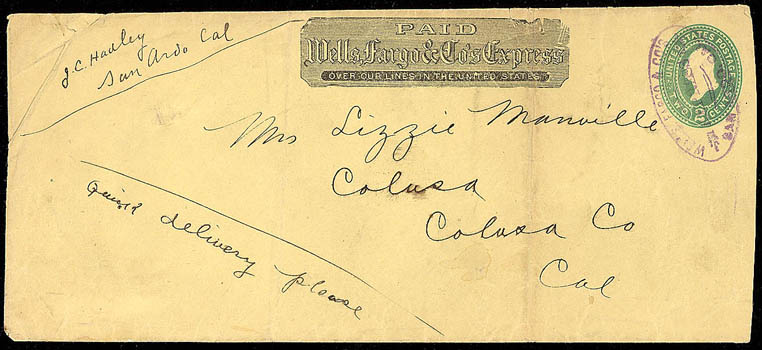 J.C. Hadley
San Ardo Cal
PAID
Wells, Fargo & Co's Express
OVER OUR LINES IN THE UNITED STATES
UNITED STATES POSTAGE
WELLS FARGO & CO'S
SAN
Mrs Lizzie Manville
Colusa
Colusa Co
Cal
Quick delivery please